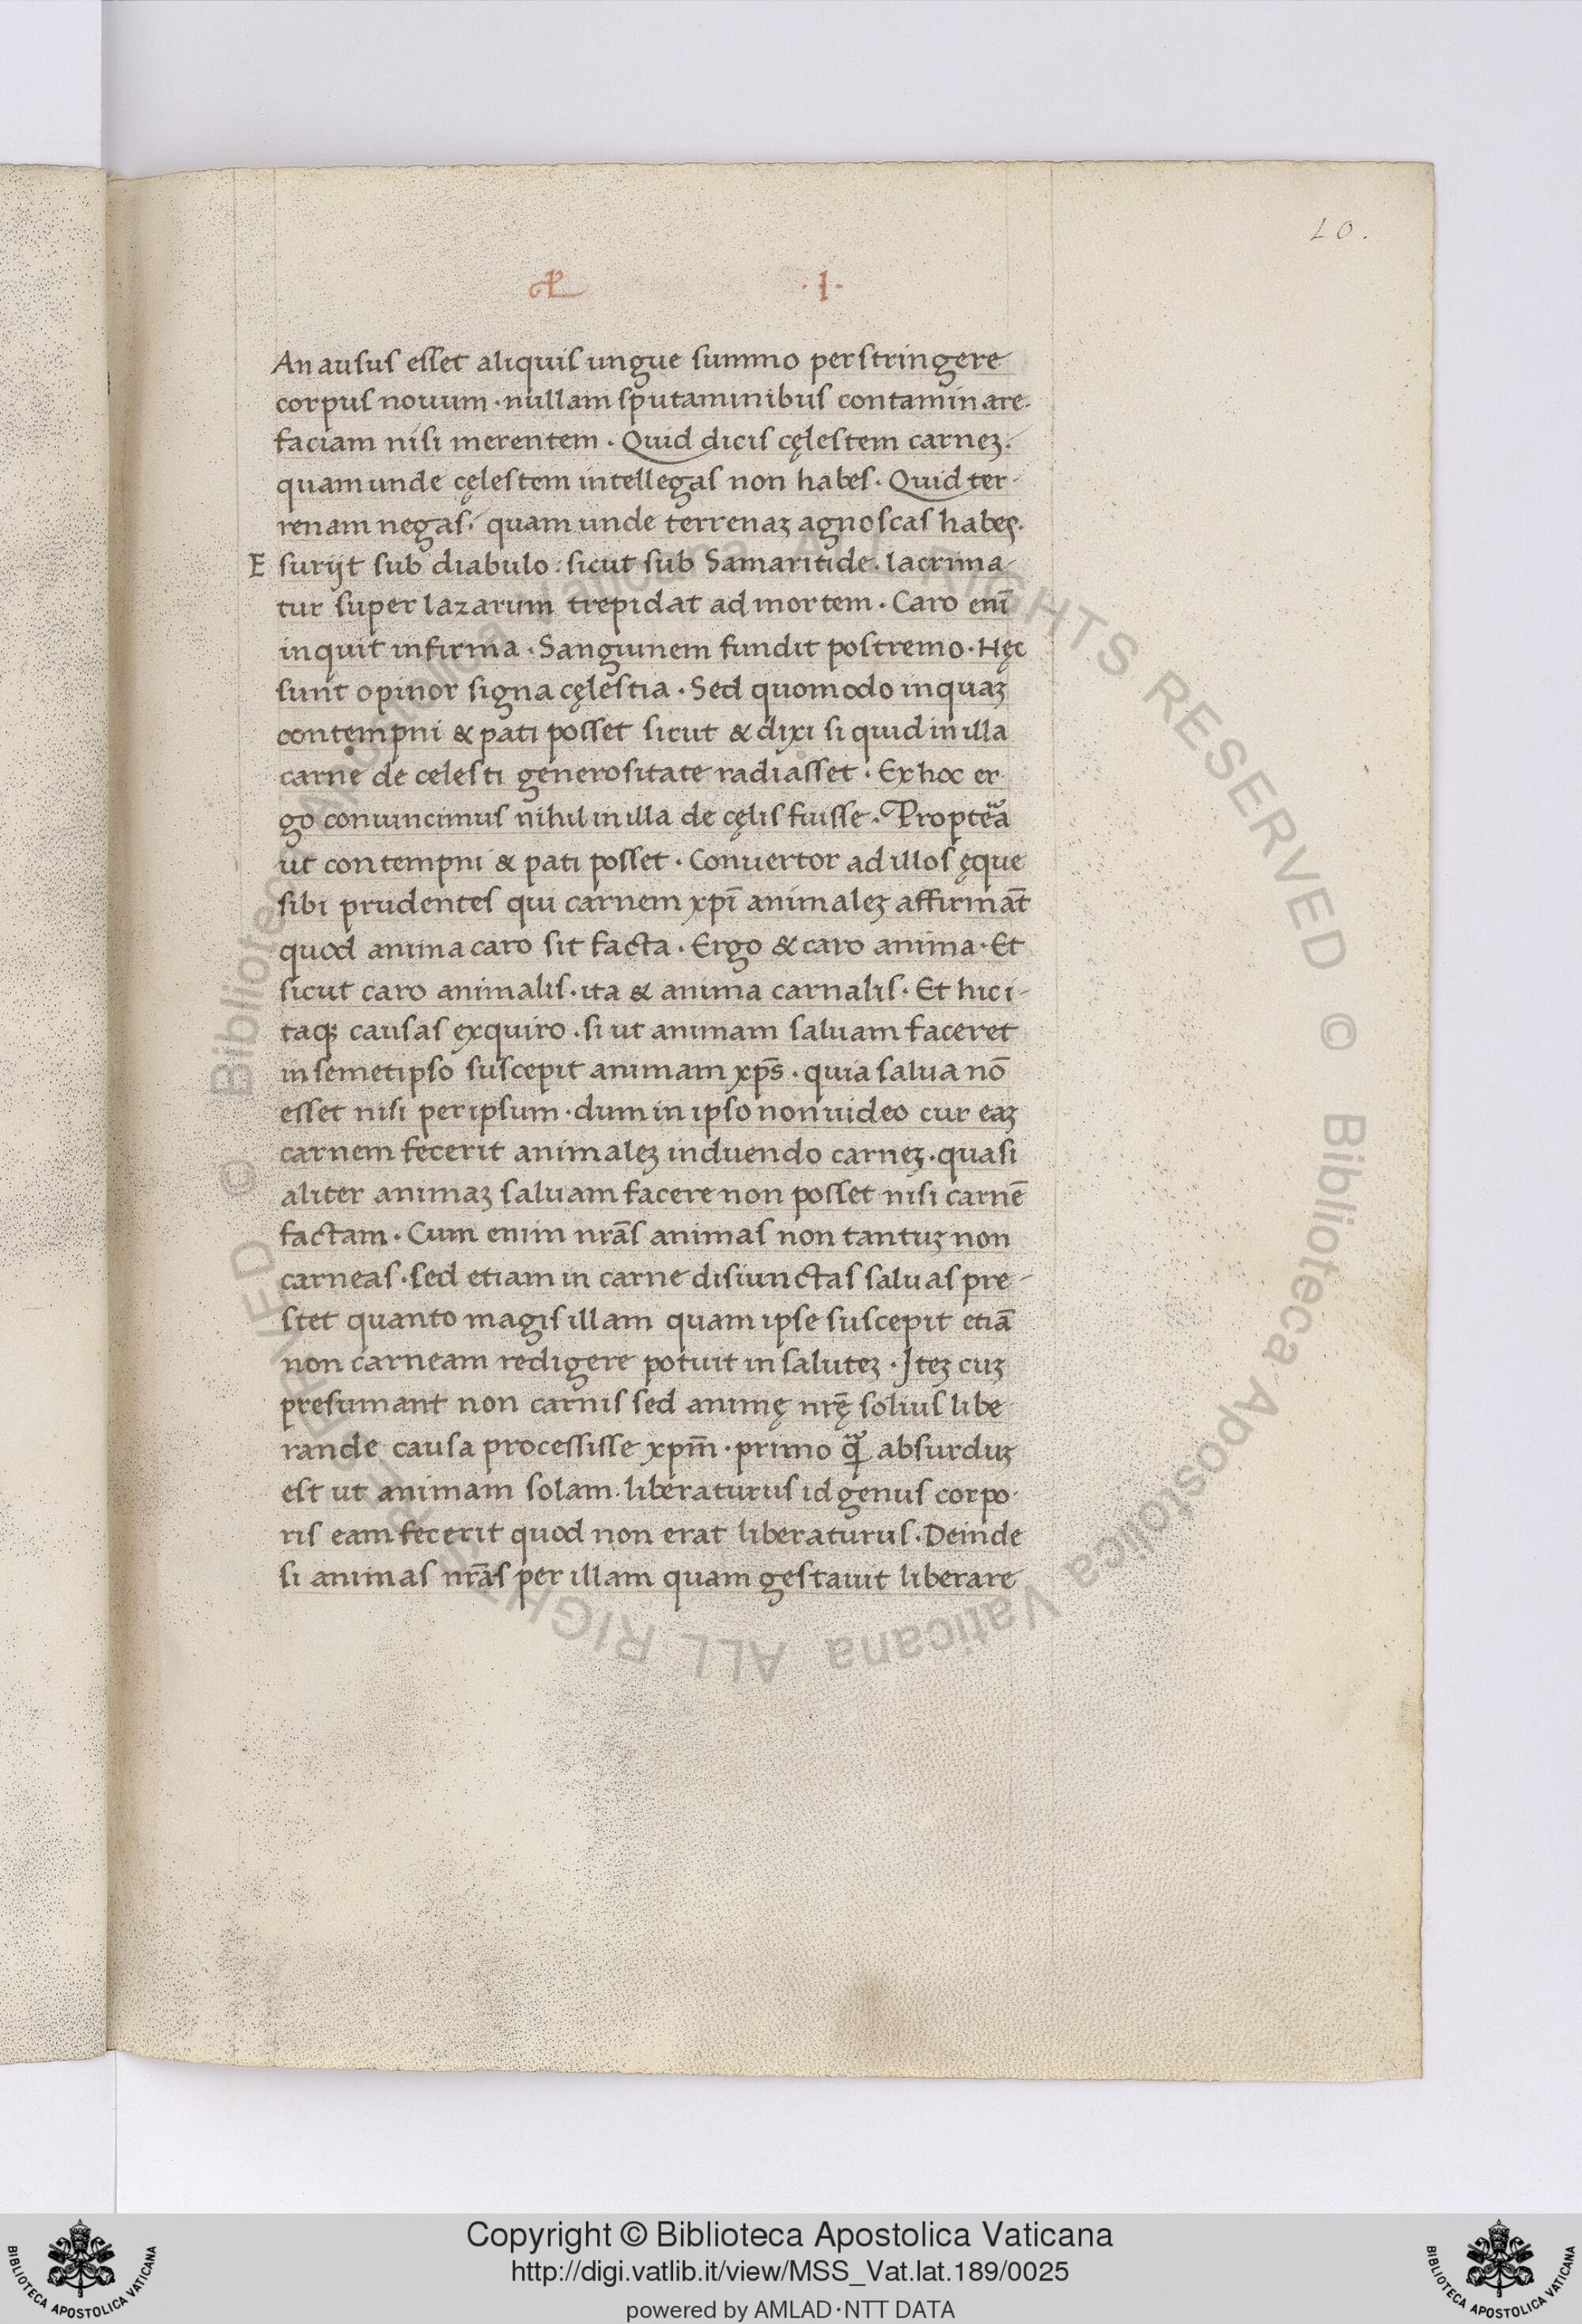 10.
·I·
An ausus esset aliquis ungue summo perstringere
corpus nouum · nullam sputaminibus contaminare.
faciam nisi merentem . Quid dicis cęlestem carneꝫ.
quam unde cęlestem intellegas non habes . Quid ter-
renam negas. quam unde terrenaꝫ agnoscas habes.
E surijt sub diabulo . sicut sub Samaritide . lacrima-
tur super lazarum trepidat ad mortem . Caro enī
inquit infirma . Sanguinem fundit postremo . Hęc
sunt opinor signa cęlestia . Sed quomodo inquaꝫ
contempni & pati posset sicut & dixi si quid in illa
carne de celesti generositate radiasset . Ex hoc er
go conuincimus nihil in illa de cęlis fuisse . Propteā
ut contempni & pati posset . Conuertor ad illos ęque
sibi prudentes qui carnem xpī animaleꝫ affirmāt
quod anima caro sit facta . Ergo & caro anima . Et
sicut caro animalis . ita & anima carnalis . Et hic i-
taqꝫ causas exquiro . si ut animam saluam faceret
in semetipso suscepit animam xp̄s . quia salua nō
esset nisi per ipsum . dum in ipso non uideo cur eaꝫ
carnem fecerit animaleꝫ induendo carneꝫ . quasi
aliter animaꝫ saluam facere non posset nisi carnē
factam . Cum enim nrās animas non tantuꝫ non
carneas . sed etiam in carne disiunctas saluas pre-
stet quanto magis illam quam ipse suscepit etiā
non carneam redigere potuit in saluteꝫ . Iteꝫ cuꝫ
presumant non carnis sed animę nrę̄ solius libe
rande causa processisse xpm̄ . primo ꝙ absurduꝫ
est ut animam solam liberaturus id genus corpo
ris eam fecerit quod non erat liberaturus . Deinde
si animas nrās per illam quam gestauit liberare
© Biblioteca Apostolica Vaticana ALL RIGHTS RESERVED © Biblioteca Apostolica Vaticana ALL RIGHTS RESERVED
Copyright © Biblioteca Apostolica Vaticana
http://digi.vatlib.it/view/MSS_Vat.lat.189/0025
powered by AMLAD·NTT DATA
BIBLIOTECA APOSTOLICA VATICANA
BIBLIOTECA APOSTOLICA VATICANA